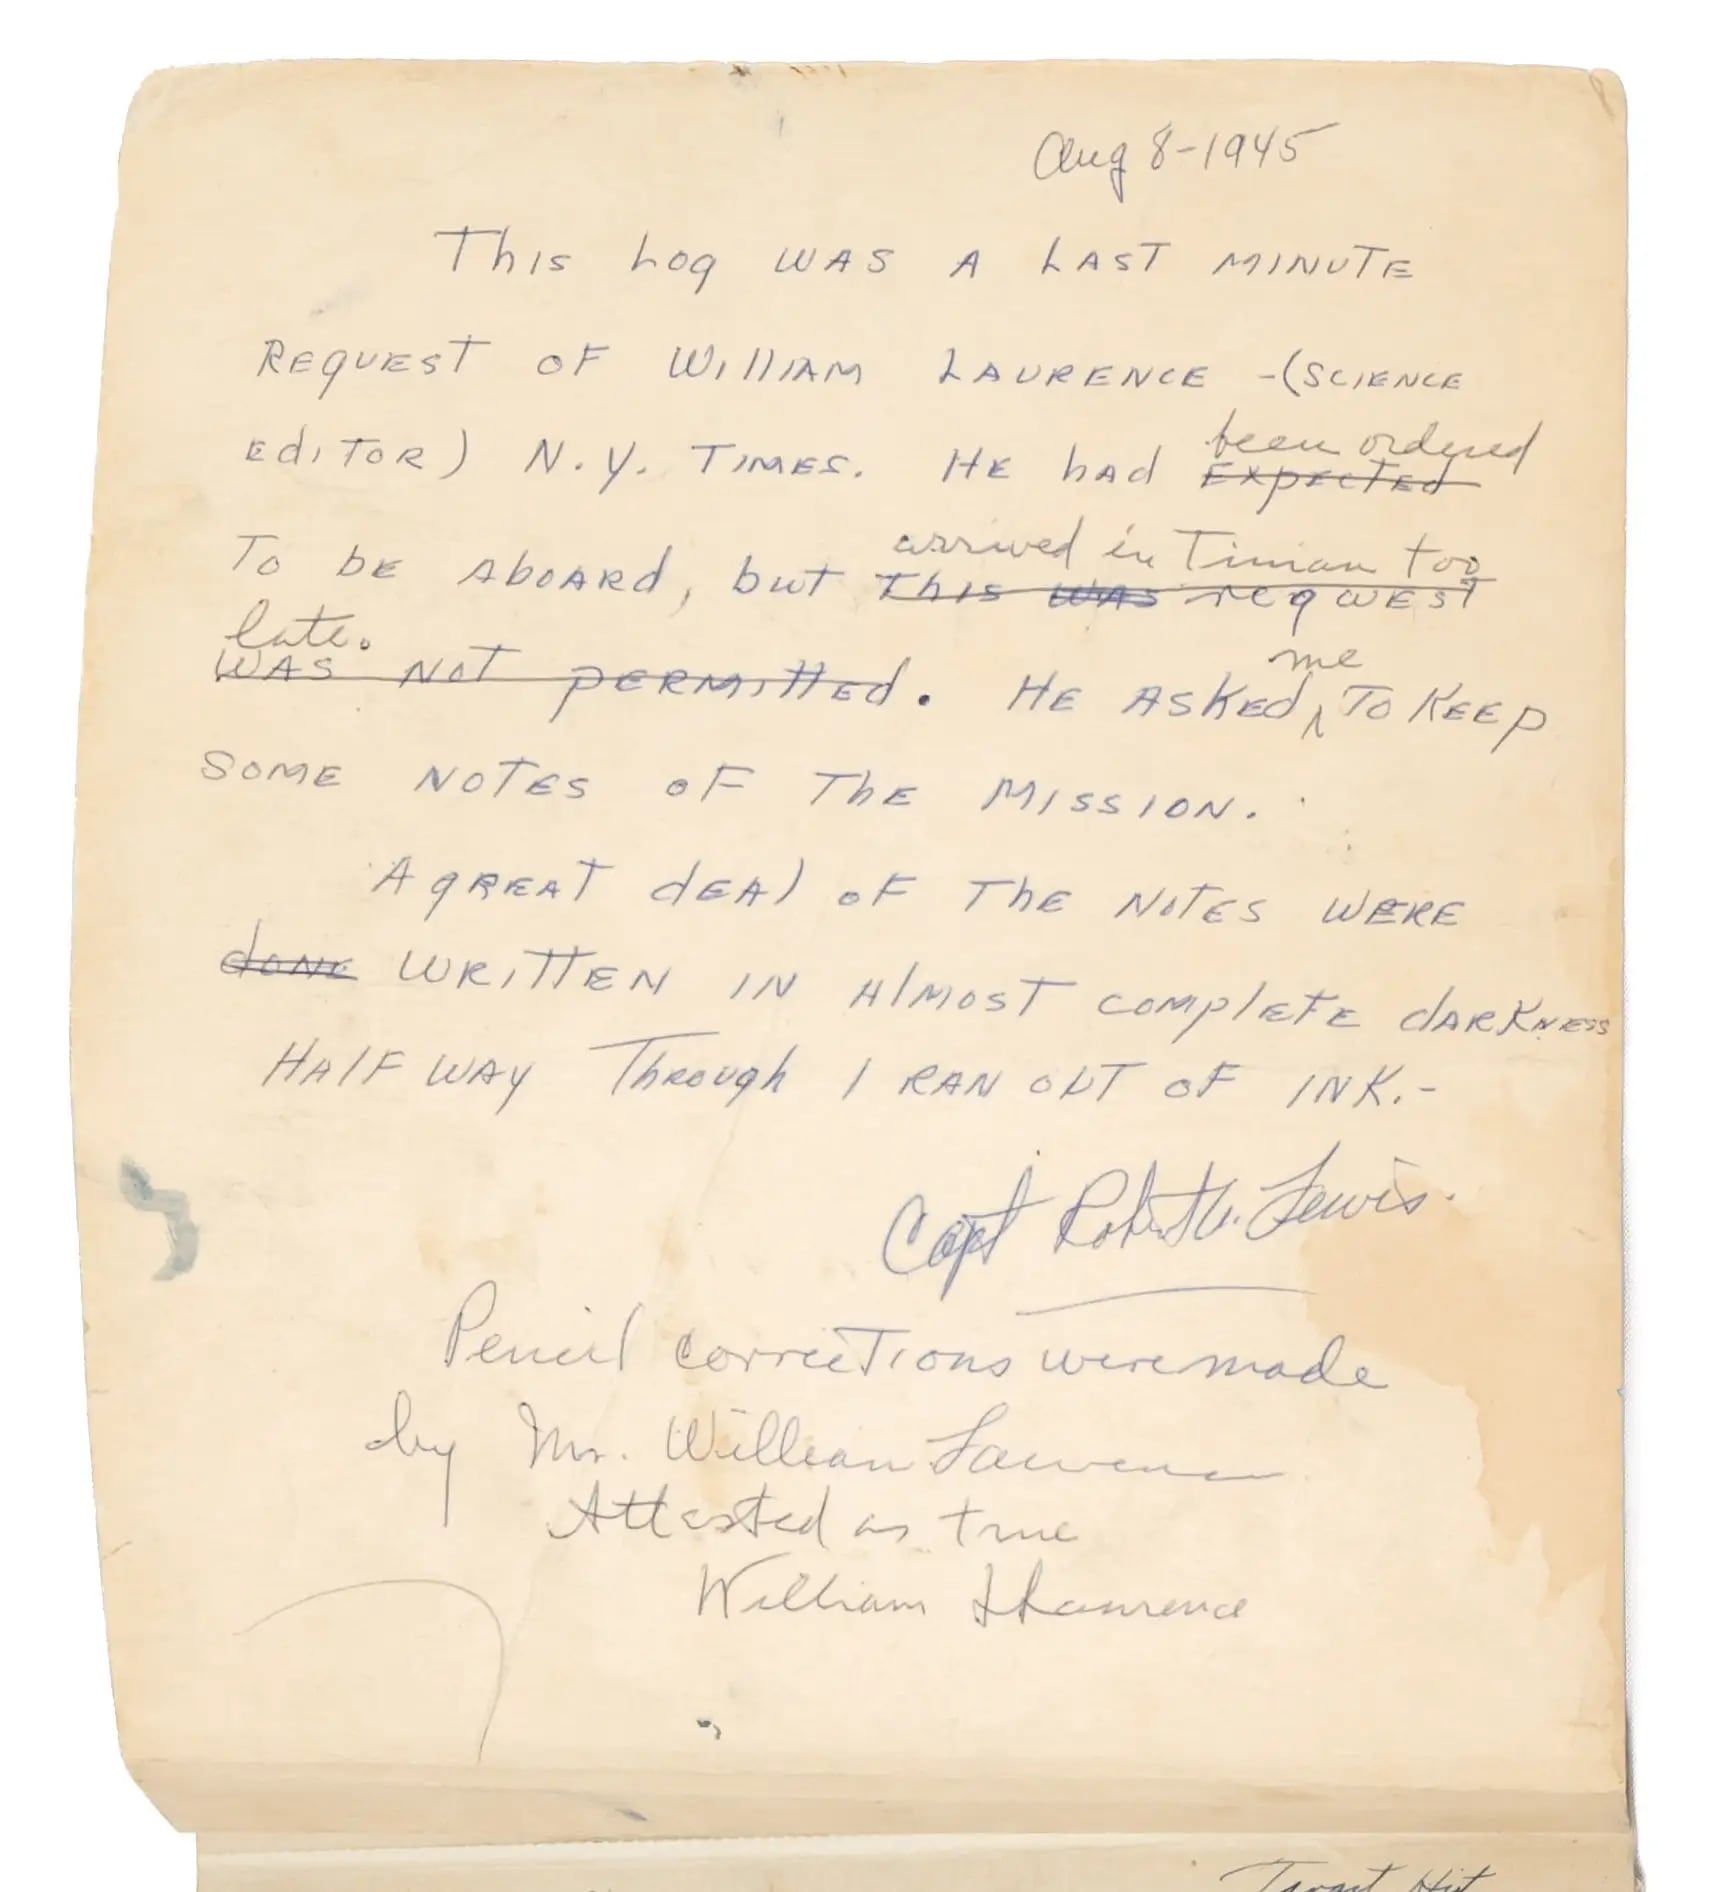 Aug 8-1945
This Log was a Last minute
Request of William Laurence -(science
editor) N.Y. Times. He had been ordered
expected
arrived in Tinian too
To be aboard, but this was request
late.
was not permitted. He asked me to keep
some notes of the mission.
A great deal of the notes were
done written in almost complete darkness
Half way Through I ran out of ink.-
Capt Robert A. Lewis.
Pencil corrections were made
by Mr. William Lawrence
Attested as true
William L Laurence
Target Hit